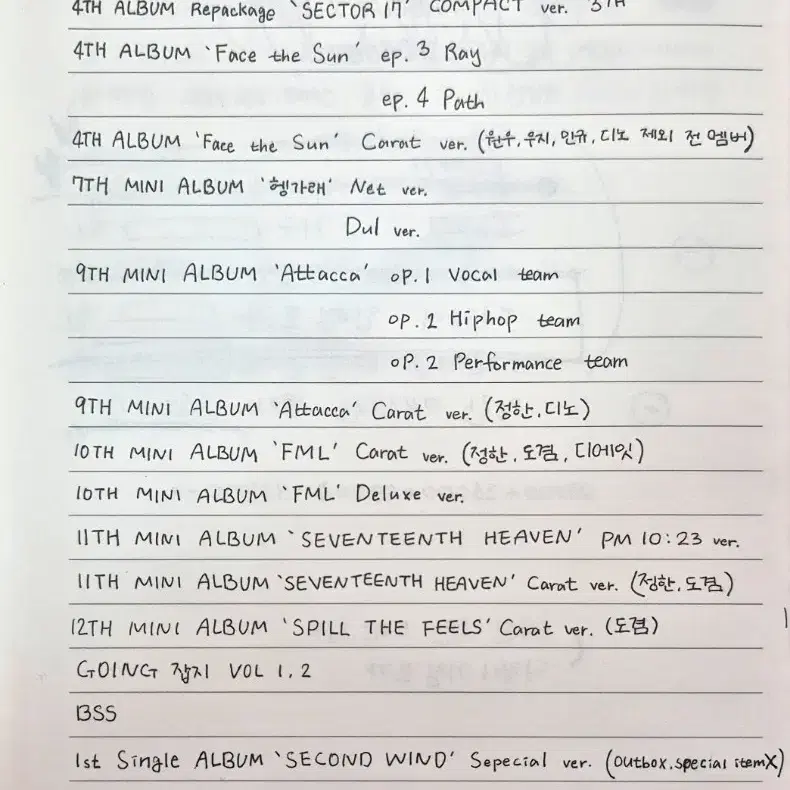 4TH ALBUM Repackage 'SECTOR 17' COMPACT ver.
4TH ALBUM 'Face the Sun' ep. 3 Ray
ep. 4 Path
4TH ALBUM 'Face the Sun' Carat ver. (원우, 우지, 민규, 디노 제외 전 멤버)
7TH MINI ALBUM '헹가래' Net ver.
Dul ver.
9TH MINI ALBUM 'Attacca' op. 1 Vocal team
op. 2 Hiphop team
op. 2 Performance team
9TH MINI ALBUM 'Attacca' Carat ver. (정한, 디노)
10TH MINI ALBUM 'FML' Carat ver. (정한, 도겸, 디에잇)
10TH MINI ALBUM 'FML' Deluxe ver.
11TH MINI ALBUM 'SEVENTEENTH HEAVEN' PM 10:23 ver.
11TH MINI ALBUM 'SEVENTEENTH HEAVEN' Carat ver. (정한, 도겸)
12TH MINI ALBUM 'SPILL THE FEELS' Carat ver. (도겸)
GOING 잡지 VOL 1, 2
BSS
1st Single ALBUM 'SECOND WIND' Sepecial ver. (outbox, special item X)